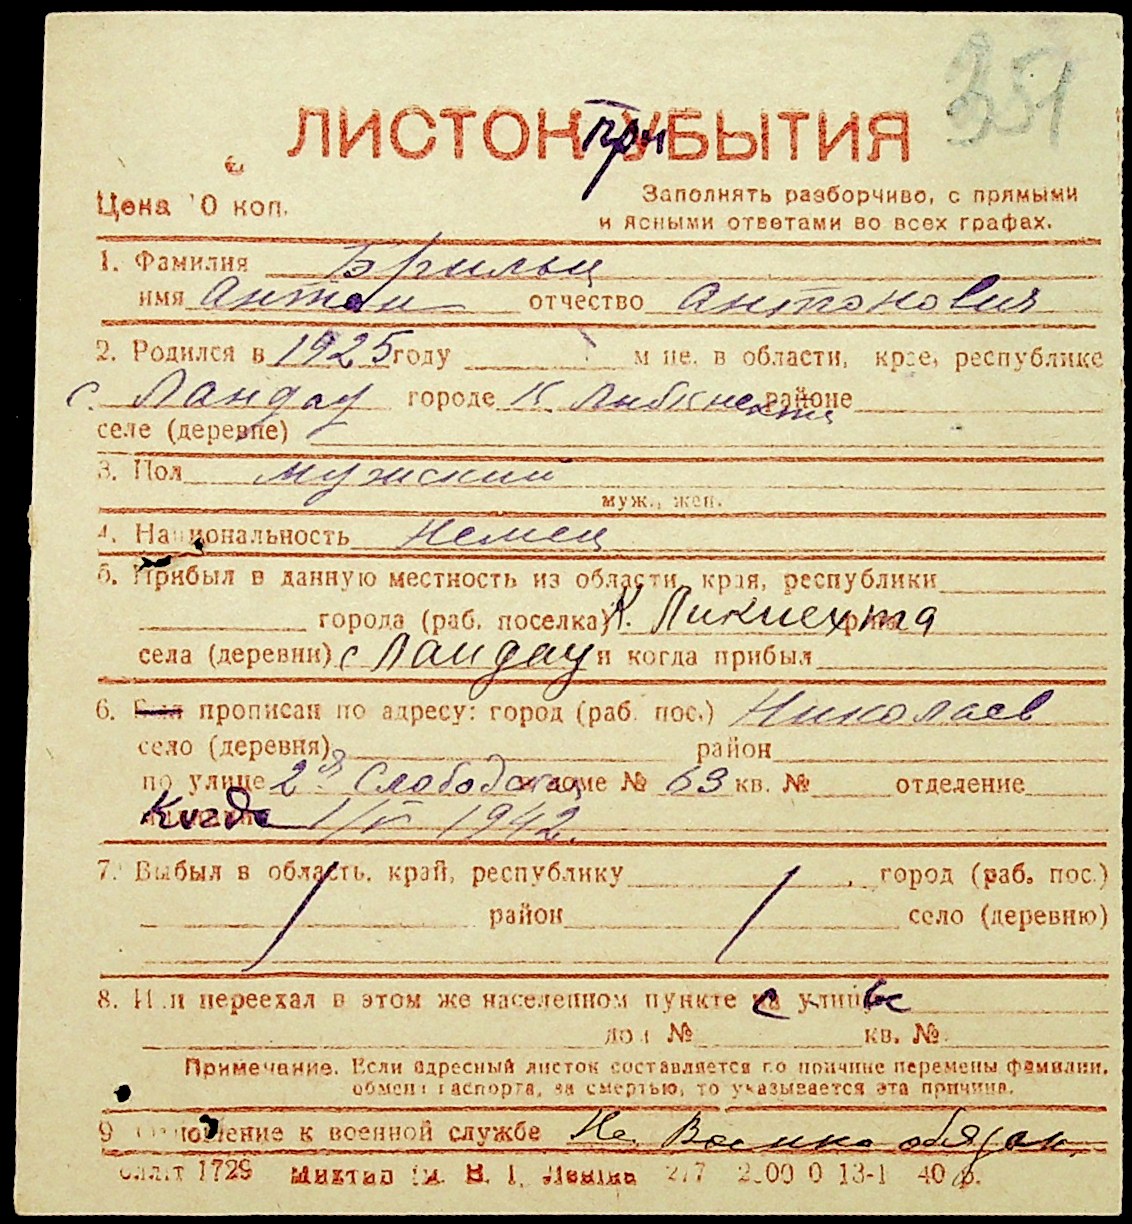 351
ЛИСТОК прибытия
Цена 10 коп.
Заполнять разборчиво, с прямыми
и ясными ответами во всех графах.
1. Фамилия Брильц
имя Антон отчество Антонович
2. Родился в 1925 году м-це, в области, крае, республике
с. Ландау городе К Либкнехта районе
селе (деревне)
3. Пол мужский
муж., жен.
4. Национальность Немец
5. Прибыл в данную местность из области, края, республики
города (раб. поселка) К. Ликнехта
села (деревни) с Ландау и когда прибыл
6. Был прописан по адресу: город (раб. пос.) Николаев
село (деревня) район
по улице 2ая Слободская в доме № 63 кв. № отделение
Когда 1/IV 1942.
7. Выбыл в область, край, республику город (раб. пос.)
район село (деревню)
8. Или переехал в этом же населенном пункте с улицы
дом № кв. №
Примечание. Если адресный листок составляется по причине перемены фамилии,
обмена паспорта, за смертью, то указывается эта причина.
9 Отношение к военной службе Не Военно обязан.
1729 2.00 0 13-1 40